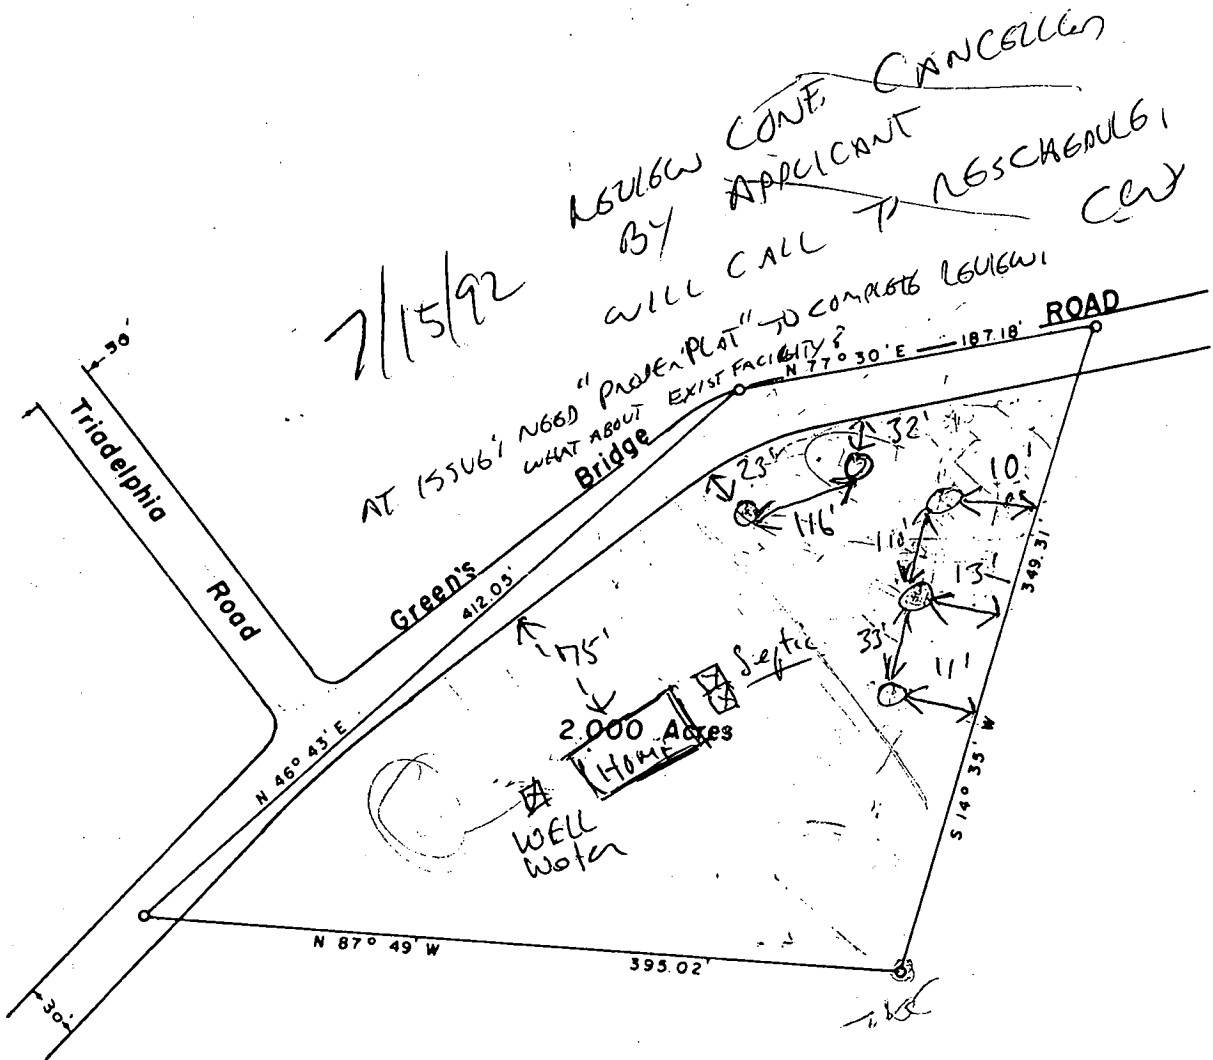 REVIEW CONF. CANCELLED
BY APPLICANT
WILL CALL TO RESCHEDULE.
7/15/92
AT ISSUE; NEED "PROPER PLAT" TO COMPLETE REVIEW.
WHAT ABOUT EXIST FACILITY?
ROAD
N 77° 30' E 187.18'
30'
Triadelphia
Road
Green's
Bridge
412.05'
N 46° 43' E
32'
23'
116'
10'
110'
13'
33'
11'
349.31'
S 14° 35' W
175'
Septic
2.000 Acres
HOME
WELL
Water
N 87° 49' W
395.02'
30'